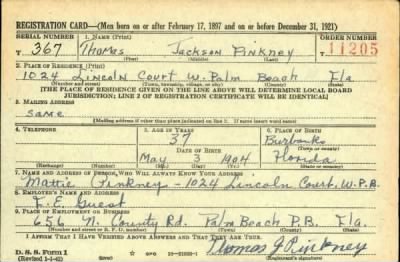 REGISTRATION CARD—(Men born on or after February 17, 1897 and on or before December 31, 1921)
SERIAL NUMBER 1. NAME (Print) ORDER NUMBER
T 367 Thomas Jackson Pinkney 11205
(First) (Middle) (Last)
2. PLACE OF RESIDENCE (Print)
1024 Lincoln Court W. Palm Beach Fla
(Number and street) (Town, township, village, or city) (County) (State)
[THE PLACE OF RESIDENCE GIVEN ON THE LINE ABOVE WILL DETERMINE LOCAL BOARD
JURISDICTION; LINE 2 OF REGISTRATION CERTIFICATE WILL BE IDENTICAL]
3. MAILING ADDRESS
Same
[Mailing address if other than place indicated on line 2. If same insert word same]
4. TELEPHONE 5. AGE IN YEARS 6. PLACE OF BIRTH
37 Burbanks
DATE OF BIRTH (Town or county)
May 3 1904 Florida
(Exchange) (Number) (Mo.) (Day) (Yr.) (State or country)
7. NAME AND ADDRESS OF PERSON WHO WILL ALWAYS KNOW YOUR ADDRESS
Mattie Pinkney - 1024 Lincoln Court, W.P.B.
8. EMPLOYER'S NAME AND ADDRESS
F. E. Guest
9. PLACE OF EMPLOYMENT OR BUSINESS
656 N. County Rd. Palm Beach P.B. Fla.
(Number and street or R. F. D. number) (Town) (County) (State)
I AFFIRM THAT I HAVE VERIFIED ABOVE ANSWERS AND THAT THEY ARE TRUE.
D. S. S. Form 1 Thomas J Pinkney
(Revised 1-1-42) (over) (Registrant's signature)